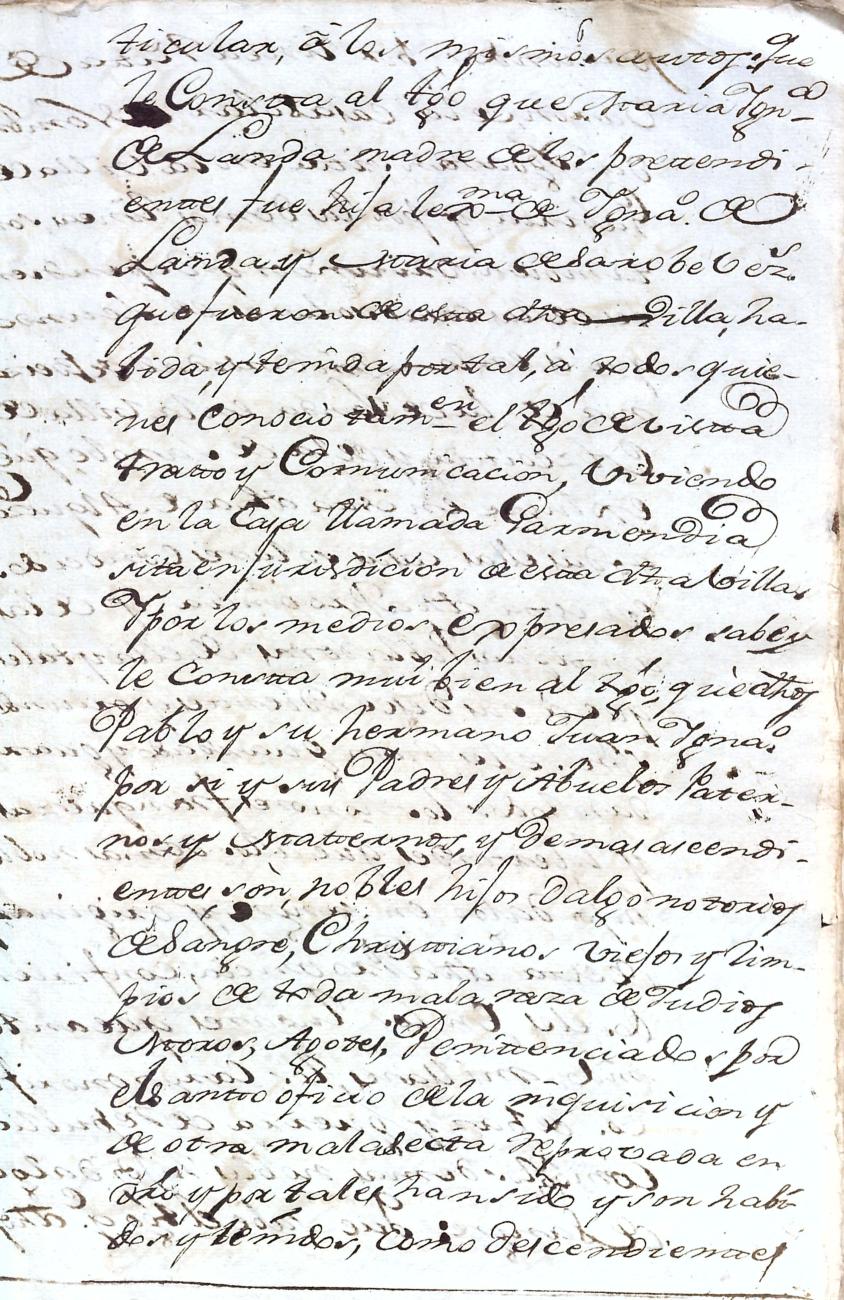 ticular, â los mismos autos. que
le Constta al tgô que Maria Ignª
de Landa madre de los prettendi-
enttes fue hija lexma de Ignaº. de
Landa y Maria de Sarobe Veźs.
que fueron de estta dha Villa, ha-
bida, y tenida por tal, à todos quie-
nes Conociò tamen el tgô de vistta
tratto y Comunicacion, Viviendo
en la Casa llamada Garmendia
sita en jurisdicion de estta dha Villa,
Y por los medios expresados sabe y
le Constta mui bien al tgô, què dhos
Pablo y su hermano Juan Ignaº.
por si y sus Padres y Abuelos Pater-
nos y Matternos, y demas ascendi-
enttes, sòn, nobles hijos dalgo nottorios
de Sangre, Christtianos Viejos y lim-
pios de toda mala raza de Judios
Moros, Agotes, Penittenciados por
el Santto oficio de la inquisicion y
de otra mala Secta reprovada en
dro y por tales han sido y son habi
dos y tenidos, como descendienttes